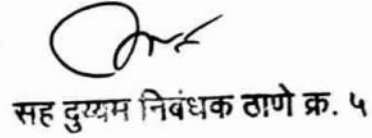 सह दुय्यम निबंधक ठाणे क्र. ५